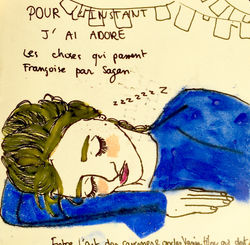 POUR L'INSTANT
J'AI ADORE
Les choses qui passent
Françoise par Sagan
zzzzzzZ
Entre l'art des